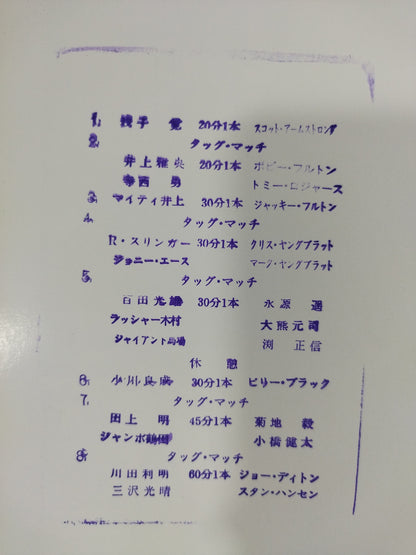 1. 浅子 覚 20分1本 スコット・アームストロング
2. タッグ・マッチ
井上雅央 20分1本 ボビー・フルトン
寺西 勇 トミー・ロジャース
3. マイティ井上 30分1本 ジャッキー・フルトン
4. タッグ・マッチ
R・スリンガー 30分1本 クリス・ヤングブラット
ジョニー・エース マーク・ヤングブラット
5. タッグ・マッチ
百田光雄 30分1本 永源 遥
ラッシャー木村 大熊元司
ジャイアント馬場 渕 正信
休 憩
6. 小川良成 30分1本 ビリー・ブラック
7. タッグ・マッチ
田上 明 45分1本 菊地 毅
ジャンボ鶴田 小橋健太
8. タッグ・マッチ
川田利明 60分1本 ジョー・ディトン
三沢光晴 スタン・ハンセン